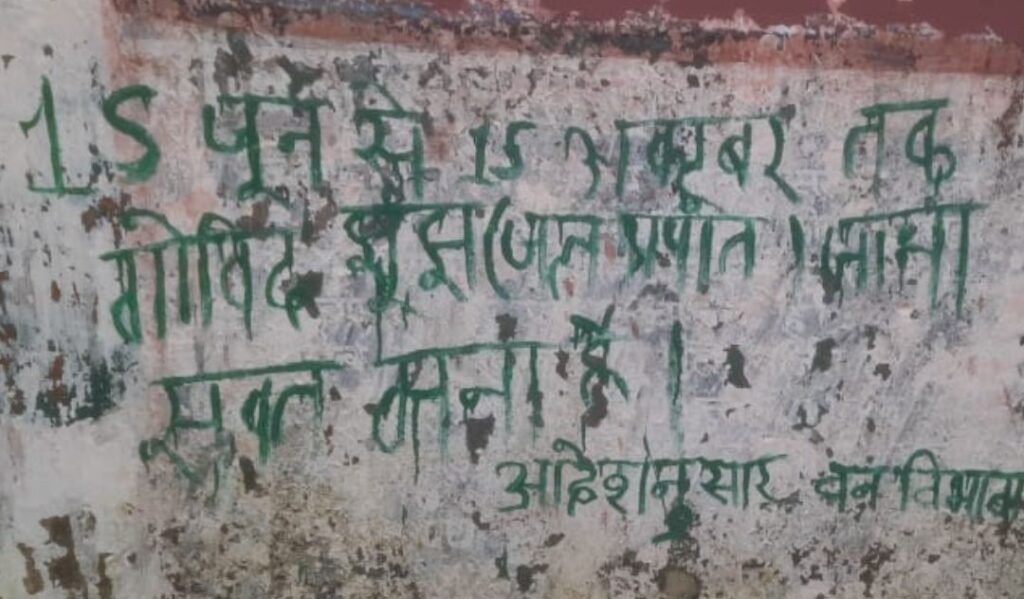 15 जून से 15 अक्टूबर तक
गोविंद झुंझ (जल प्रपात) जाना
सख्त मना है।
आदेशनुसार वन विभाग